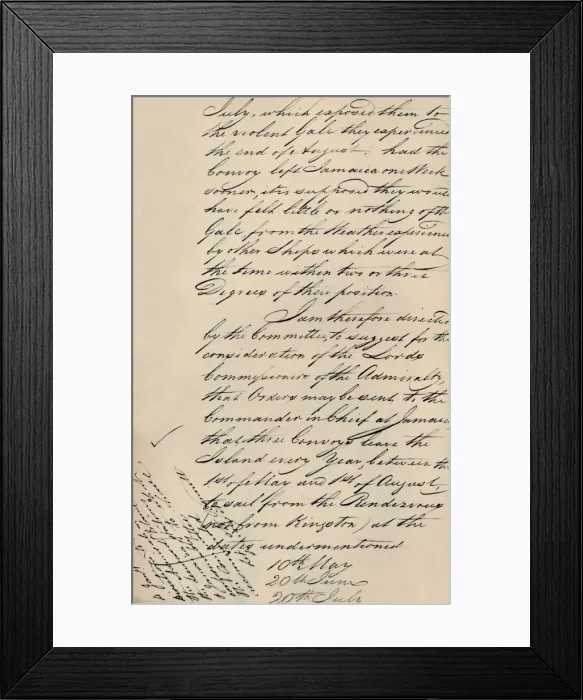 July, which exposed them to
the violent Gale they experience
the end of August; had the
Convoy left Jamaica one Week
sooner, it is supposed they would
have felt little or nothing of th
Gale from the Weather experienc
by other Ships which were at
the time within two or three
Degrees of their position.
I am therefore directe
by the Committee, to suggest for th
consideration of the Lords
Commissioners of the Admiralty,
that Orders may be sent to the
Commander in Chief at Jamaica
that three Convoys leave the
Island every Year, between th
1st of May and 1st of August
to sail from the Rendezvous
(not from Kingston) at the
dates undermentioned
10th May
20th June
20th July